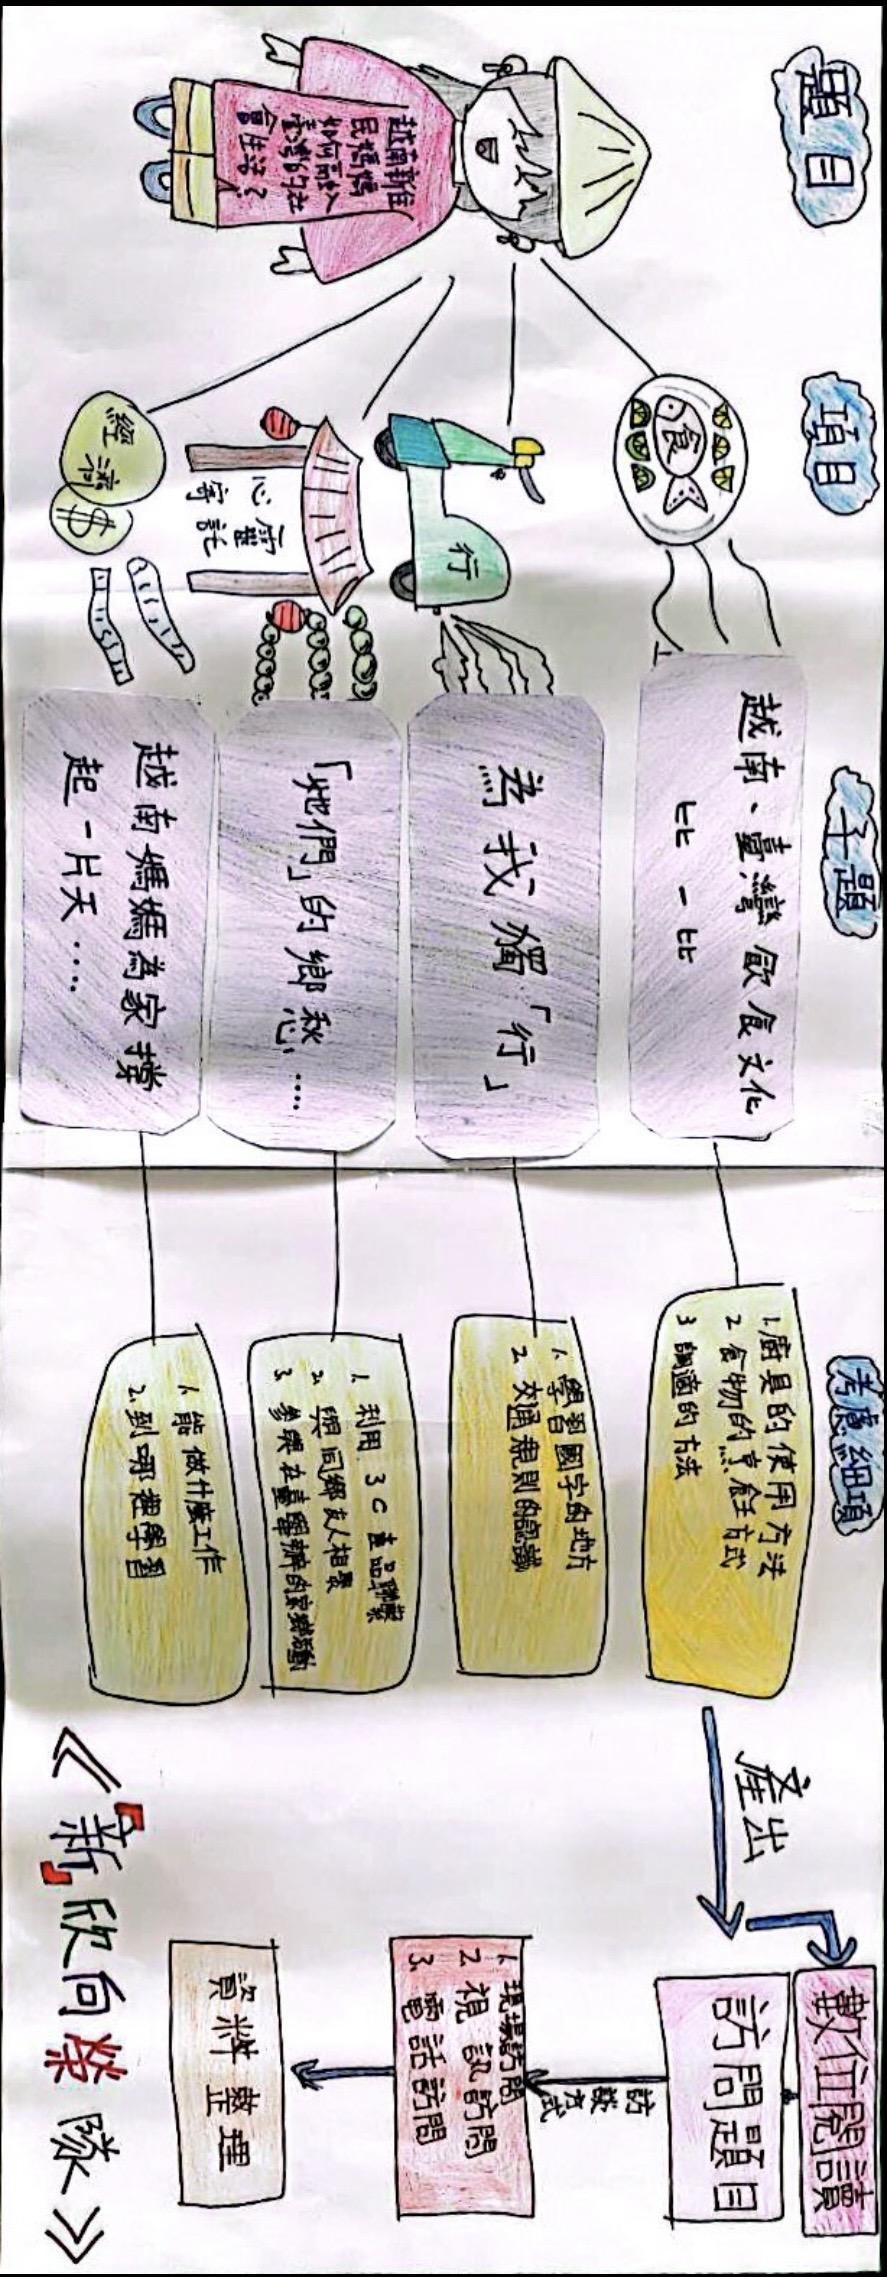 題目
項目
子題
考慮細項
越南新住
民媽媽
如何融入
臺灣的社
會生活？
食
行
心靈
寄託
廟
經濟
$
越南、臺灣飲食文化
比一比
為我獨「行」
「她們」的鄉愁....
越南媽媽為家撐
起一片天....
1.廚具的使用方法
2.食物的烹飪方式
3.調適的方法
1.學習國字的地方
2.交通規則的認識
1.利用3C產品聯繫
2.與同鄉友人相聚
3.參與在臺舉辦的家鄉活動
1.能做什麼工作
2.到哪裡學習
產出
數位閱讀
訪問題目
訪談
方式
1.現場訪問
2.視訊訪問
3.電話訪問
資料整理
《『新』欣向榮隊》